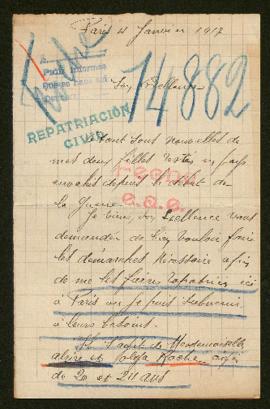 Paris 4 Janvier 1917
Son Excellence
14882
REPATRIACIÓN
CIVIL
étant sans nouvelles de
mes deux filles restés en pays
envahis depuis le début de
la Guerre
Je viens, son Exellence vous
demander de bien vouloir faire
les démarches nécessaire afin
de me les faires rapatriés ici
à Paris où je puis subvenir
à leurs besoins.
Il s'agit de Mesdemoiselles
et Roche
de 20 et 24 ans